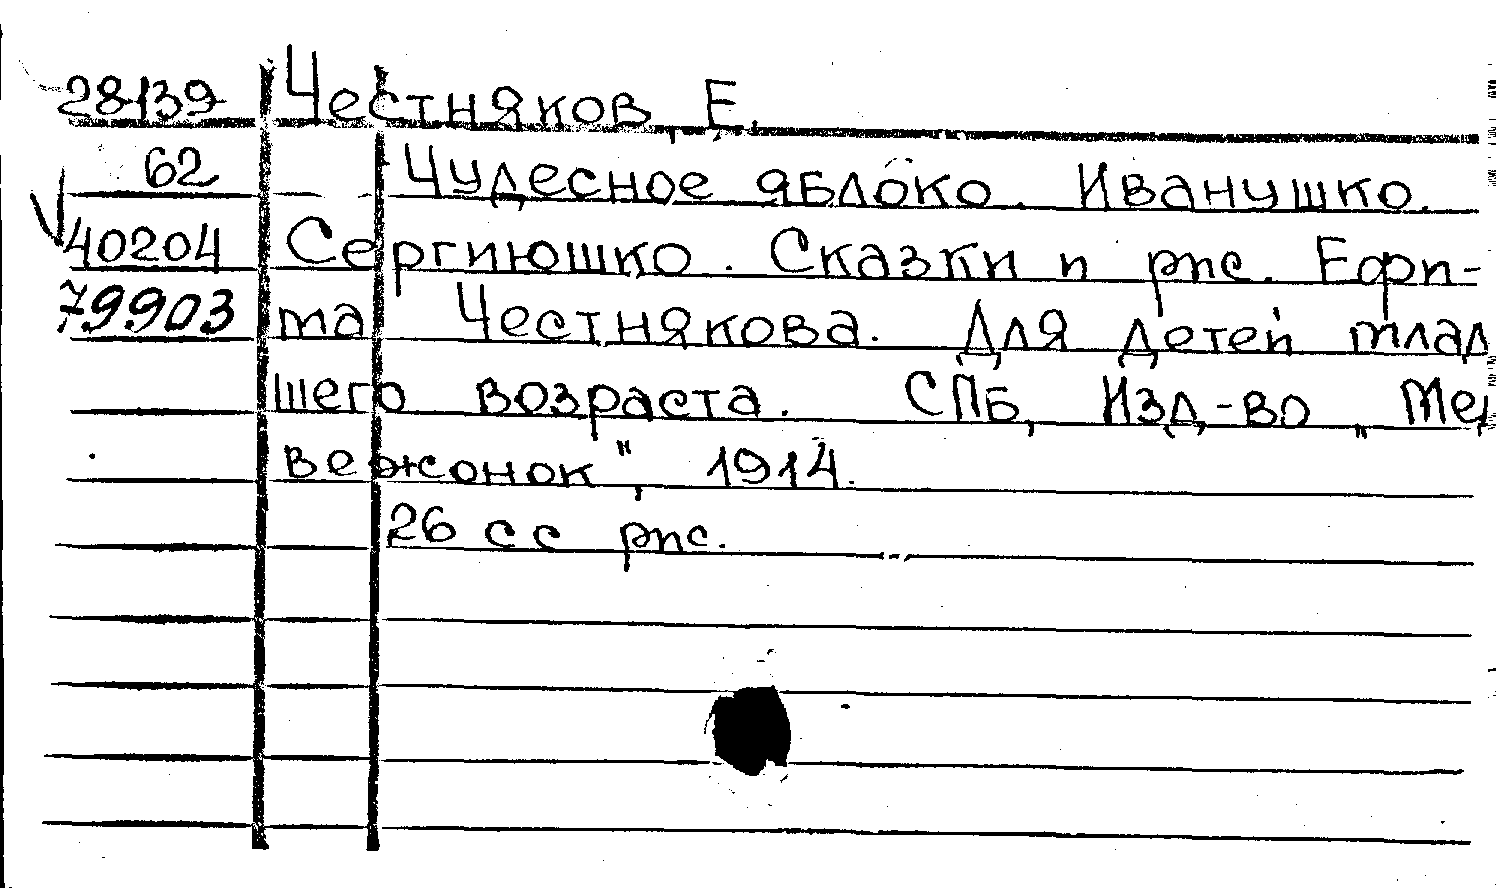 28139 Честняков, Е.
62 Чудесное яблоко. Иванушко.
40204 Сергиюшко. Сказки и рис. Ефи-
79903 ма Честнякова. Для детей млад
шего возраста. СПБ, Изд-во „Мед
вежонок", 1914.
26 сс рис.